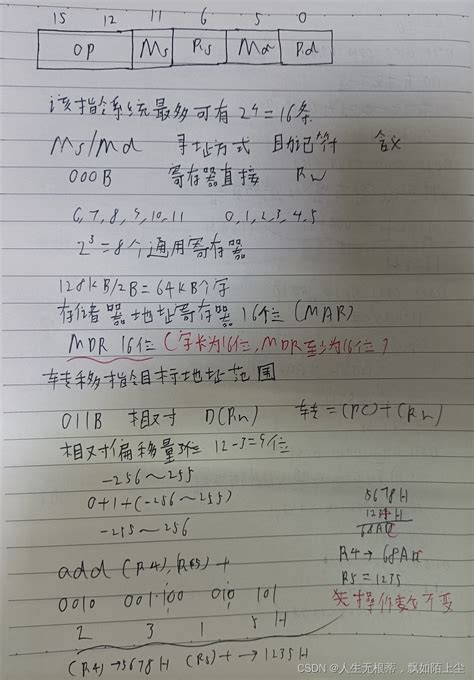 15 12 11 6 5 0
OP Ms Rs Md Rd
该指令系统最多可有 2⁴=16条
Ms/Md 寻址方式 助记符 含义
000B 寄存器直接 Rn
6,7,8,9,10,11 0,1,2,3,4,5
2³=8个通用寄存器
128KB/2B=64KB个字
存储器地址寄存器16位(MAR)
MDR 16位(字长为16位,MDR至少为16位)
转移指目标地址范围
011B 相对 D(Rn) 转=(PC)+(Rn)
相对偏移量 12-3=9位
-256~255
0+1+(-256~255)
-255~256
5678H
1234H
68AC
add (R4),(R5)+
R4→68AC
R5=1235
0010 001100 010 101
源操作数不变
2 3 1 5 H
(R4)→5678H (R5)+→1235H
CSDN @人生无根蒂，飘如陌上尘